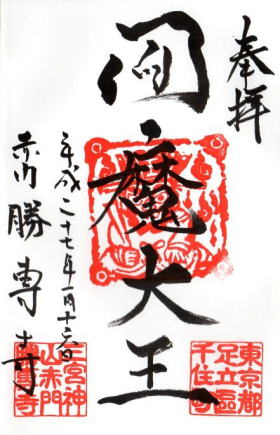 奉拝
閻魔大王
平成二十七年一月十六日
赤門勝専寺
東京都
足立區
千住町
三宮神
山赤門
勝專寺